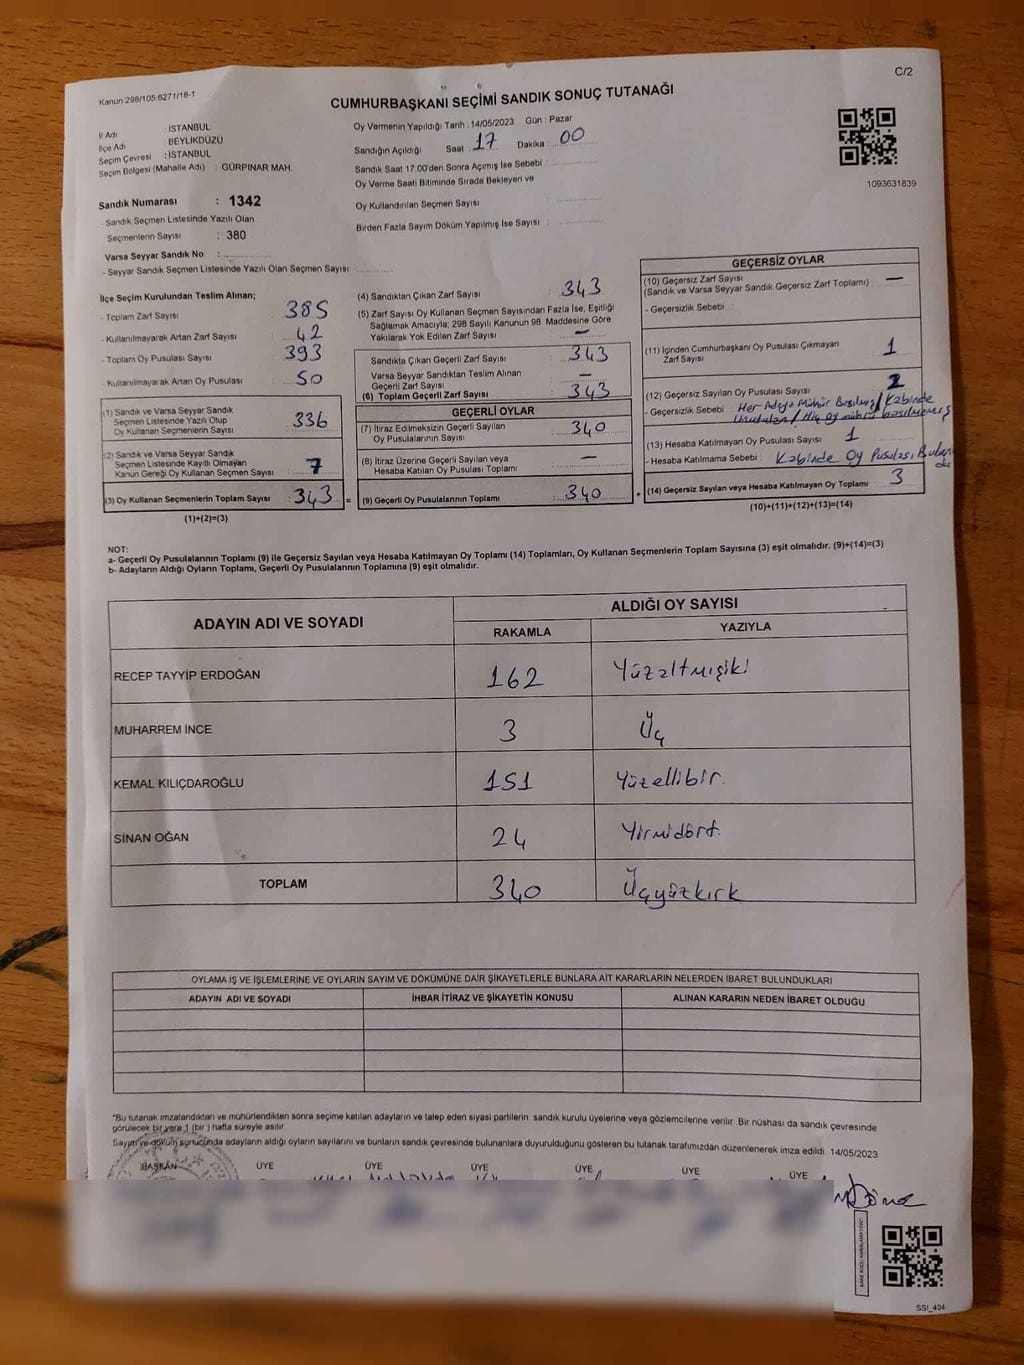 C/2
Kanun 298/105.6271/18-1
CUMHURBAŞKANI SEÇİMİ SANDIK SONUÇ TUTANAĞI
İl Adı : İSTANBUL
İlçe Adı BEYLİKDÜZÜ
Seçim Çevresi : İSTANBUL
Seçim Bölgesi (Mahalle Adı) : GÜRPINAR MAH.
Oy Vermenin Yapıldığı Tarih : 14/05/2023 Gün : Pazar
Sandığın Açıldığı Saat : 17 Dakika : 00
Sandık Saat 17:00'den Sonra Açımış İse Sebebi :
Oy Verme Saati Bitiminde Sırada Bekleyen ve
Oy Kullandırılan Seçmen Sayısı :
Birden Fazla Sayım Döküm Yapılmış İse Sayısı :
1093631839
Sandık Numarası : 1342
- Sandık Seçmen Listesinde Yazılı Olan
Seçmenlerin Sayısı : 380
Varsa Seyyar Sandık No :
- Seyyar Sandık Seçmen Listesinde Yazılı Olan Seçmen Sayısı :
İlçe Seçim Kurulundan Teslim Alınan;
- Toplam Zarf Sayısı : 385
- Kullanılmayarak Artan Zarf Sayısı : 42
- Toplam Oy Pusulası Sayısı : 393
- Kullanılmayarak Artan Oy Pusulası : 50
(1) Sandık ve Varsa Seyyar Sandık
Seçmen Listesinde Yazılı Olup
Oy Kullanan Seçmenlerin Sayısı : 336
(2) Sandık ve Varsa Seyyar Sandık
Seçmen Listesinde Kayıtlı Olmayan
Kanun Gereği Oy Kullanan Seçmen Sayısı : 7
(3) Oy Kullanan Seçmenlerin Toplam Sayısı : 343 =
(1)+(2)=(3)
(4) Sandıktan Çıkan Zarf Sayısı : 343
(5) Zarf Sayısı Oy Kullanan Seçmen Sayısından Fazla İse, Eşitliği
Sağlamak Amacıyla; 298 Sayılı Kanunun 98. Maddesine Göre
Yakılarak Yok Edilen Zarf Sayısı : —
Sandıkta Çıkan Geçerli Zarf Sayısı : 343
Varsa Seyyar Sandıktan Teslim Alınan
Geçerli Zarf Sayısı : —
(6) Toplam Geçerli Zarf Sayısı : 343
GEÇERLİ OYLAR
(7) İtiraz Edilmeksizin Geçerli Sayılan
Oy Pusulalarının Sayısı : 340
(8) İtiraz Üzerine Geçerli Sayılan veya
Hesaba Katılan Oy Pusulası Toplamı : —
(9) Geçerli Oy Pusulalarının Toplamı : 340 +
GEÇERSİZ OYLAR
(10) Geçersiz Zarf Sayısı —
(Sandık ve Varsa Seyyar Sandık Geçersiz Zarf Toplamı) :
- Geçersizlik Sebebi :
(11) İçinden Cumhurbaşkanı Oy Pusulası Çıkmayan
Zarf Sayısı : 1
(12) Geçersiz Sayılan Oy Pusulası Sayısı : 2
- Geçersizlik Sebebi : Her Adaya Mühür Basılmış / Kabinde
Unutulan / Hiç oy mührü basılmamış
(13) Hesaba Katılmayan Oy Pusulası Sayısı : 1
- Hesaba Katılmama Sebebi : Kabinde Oy Pusulası Bulun
(14) Geçersiz Sayılan veya Hesaba Katılmayan Oy Toplamı : 3
(10)+(11)+(12)+(13)=(14)
NOT:
a- Geçerli Oy Pusulalarının Toplamı (9) ile Geçersiz Sayılan veya Hesaba Katılmayan Oy Toplamı (14) Toplamları, Oy Kullanan Seçmenlerin Toplam Sayısına (3) eşit olmalıdır. (9)+(14)=(3)
b- Adayların Aldığı Oyların Toplamı, Geçerli Oy Pusulalarının Toplamına (9) eşit olmalıdır.
ADAYIN ADI VE SOYADI ALDIĞI OY SAYISI
RAKAMLA YAZIYLA
RECEP TAYYİP ERDOĞAN 162 Yüzaltmışiki
MUHARREM İNCE 3 Üç
KEMAL KILIÇDAROĞLU 151 Yüzellibir.
SİNAN OĞAN 24 Yirmidört.
TOPLAM 340 Üçyüzkırk
OYLAMA İŞ VE İŞLEMLERİNE VE OYLARIN SAYIM VE DÖKÜMÜNE DAİR ŞİKAYETLERLE BUNLARA AİT KARARLARIN NELERDEN İBARET BULUNDUKLARI
ADAYIN ADI VE SOYADI İHBAR İTİRAZ VE ŞİKAYETİN KONUSU ALINAN KARARIN NEDEN İBARET OLDUĞU
"Bu tutanak imzalandıktan ve mühürlendikten sonra seçime katılan adayların ve talep eden siyasi partilerin sandık kurulu üyelerine veya gözlemcilerine verilir. Bir nüshası da sandık çevresinde
görülecek bir yere 1 (bir) hafta süreyle asılır.
Sayım ve döküm sonucunda adayların aldığı oyların sayılarını ve bunların sandık çevresinde bulunanlara duyurulduğunu gösteren bu tutanak tarafımızdan düzenlenerek imza edildi. 14/05/2023
BAŞKAN ÜYE ÜYE ÜYE ÜYE ÜYE ÜYE
SSI_404